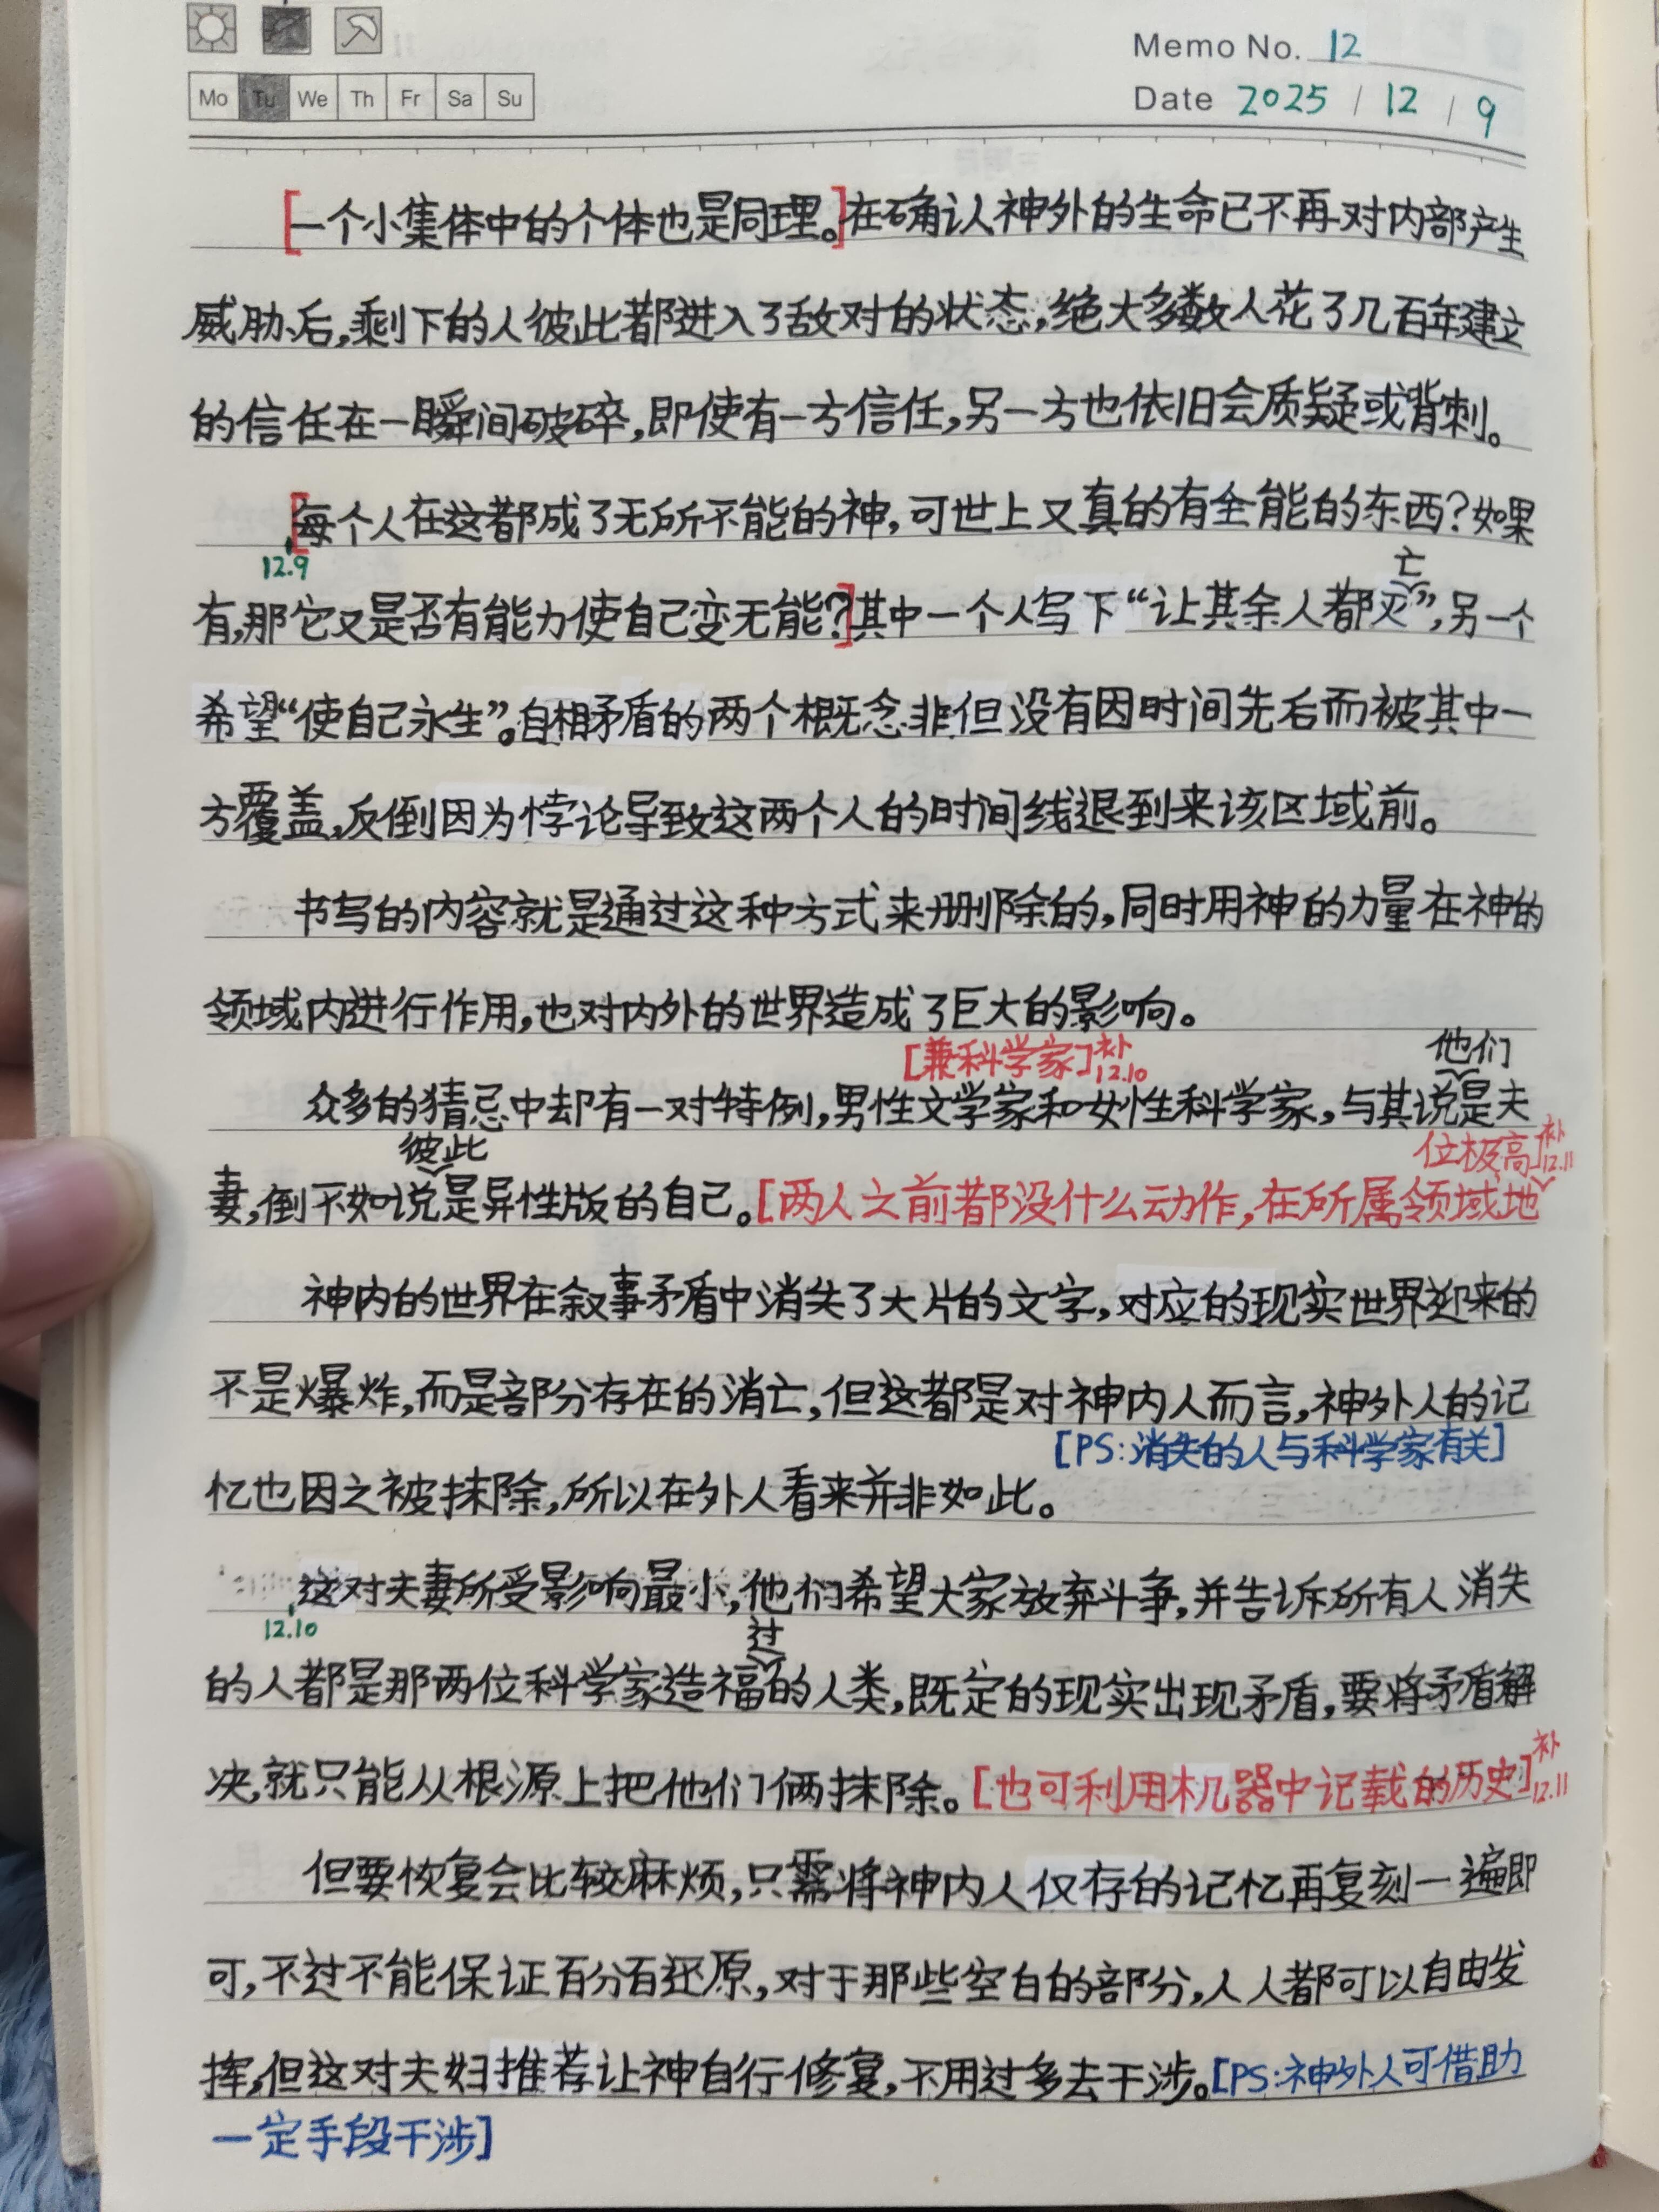 Memo No. 12
Mo Tu We Th Fr Sa Su
Date 2025 / 12 / 9
[一个小集体中的个体也是同理。]在确认神外的生命已不再对内部产生
威胁后,剩下的人彼此都进入了敌对的状态,绝大多数人花了几百年建立
的信任在一瞬间破碎,即使有一方信任,另一方也依旧会质疑或背刺。
[每个人在这都成了无所不能的神,可世上又真的有全能的东西?如果
12.9
亡
有,那它又是否有能力使自己变无能?]其中一个人写下“让其余人都灭”,另一个
希望“使自己永生”。自相矛盾的两个概念非但没有因时间先后而被其中一
方覆盖,反倒因为悖论导致这两个人的时间线退到来该区域前。
书写的内容就是通过这种方式来删除的,同时用神的力量在神的
领域内进行作用,也对内外的世界造成了巨大的影响。
[兼科学家]补12.10
他们
众多的猜忌中却有一对特例,男性文学家和女性科学家,与其说是夫
彼此
位极高]补12.11
妻,倒不如说是异性版的自己。[两人之前都没什么动作,在所属领域地
神内的世界在叙事矛盾中消失了大片的文字,对应的现实世界迎来的
不是爆炸,而是部分存在的消亡,但这都是对神内人而言,神外人的记
[PS:消失的人与科学家有关]
忆也因之被抹除,所以在外人看来并非如此。
这对夫妻所受影响最小,他们希望大家放弃斗争,并告诉所有人消失
12.10
过
的人都是那两位科学家造福的人类,既定的现实出现矛盾,要将矛盾解
决,就只能从根源上把他们俩抹除。[也可利用机器中记载的历史]补12.11
但要恢复会比较麻烦,只需将神内人仅存的记忆再复刻一遍即
可,不过不能保证百分百还原,对于那些空白的部分,人人都可以自由发
挥,但这对夫妇推荐让神自行修复,不用过多去干涉。[PS:神外人可借助
一定手段干涉]